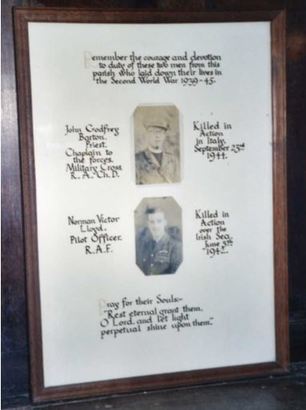 Remember the courage and devotion
to duty of these two men from this
parish who laid down their lives in
the Second World War 1939-45.
John Godfrey
Barton.
Priest.
Chaplain to
the forces.
Military Cross
R.A.Ch.D.
Killed in
Action
in Italy.
September 23rd
1944.
Norman Victor
Lloyd.
Pilot Officer.
R.A.F.
Killed in
Action
over the
Irish Sea.
June 5th
Pray for their Souls:-
"Rest eternal grant them,
O Lord, and let light
perpetual shine upon them."